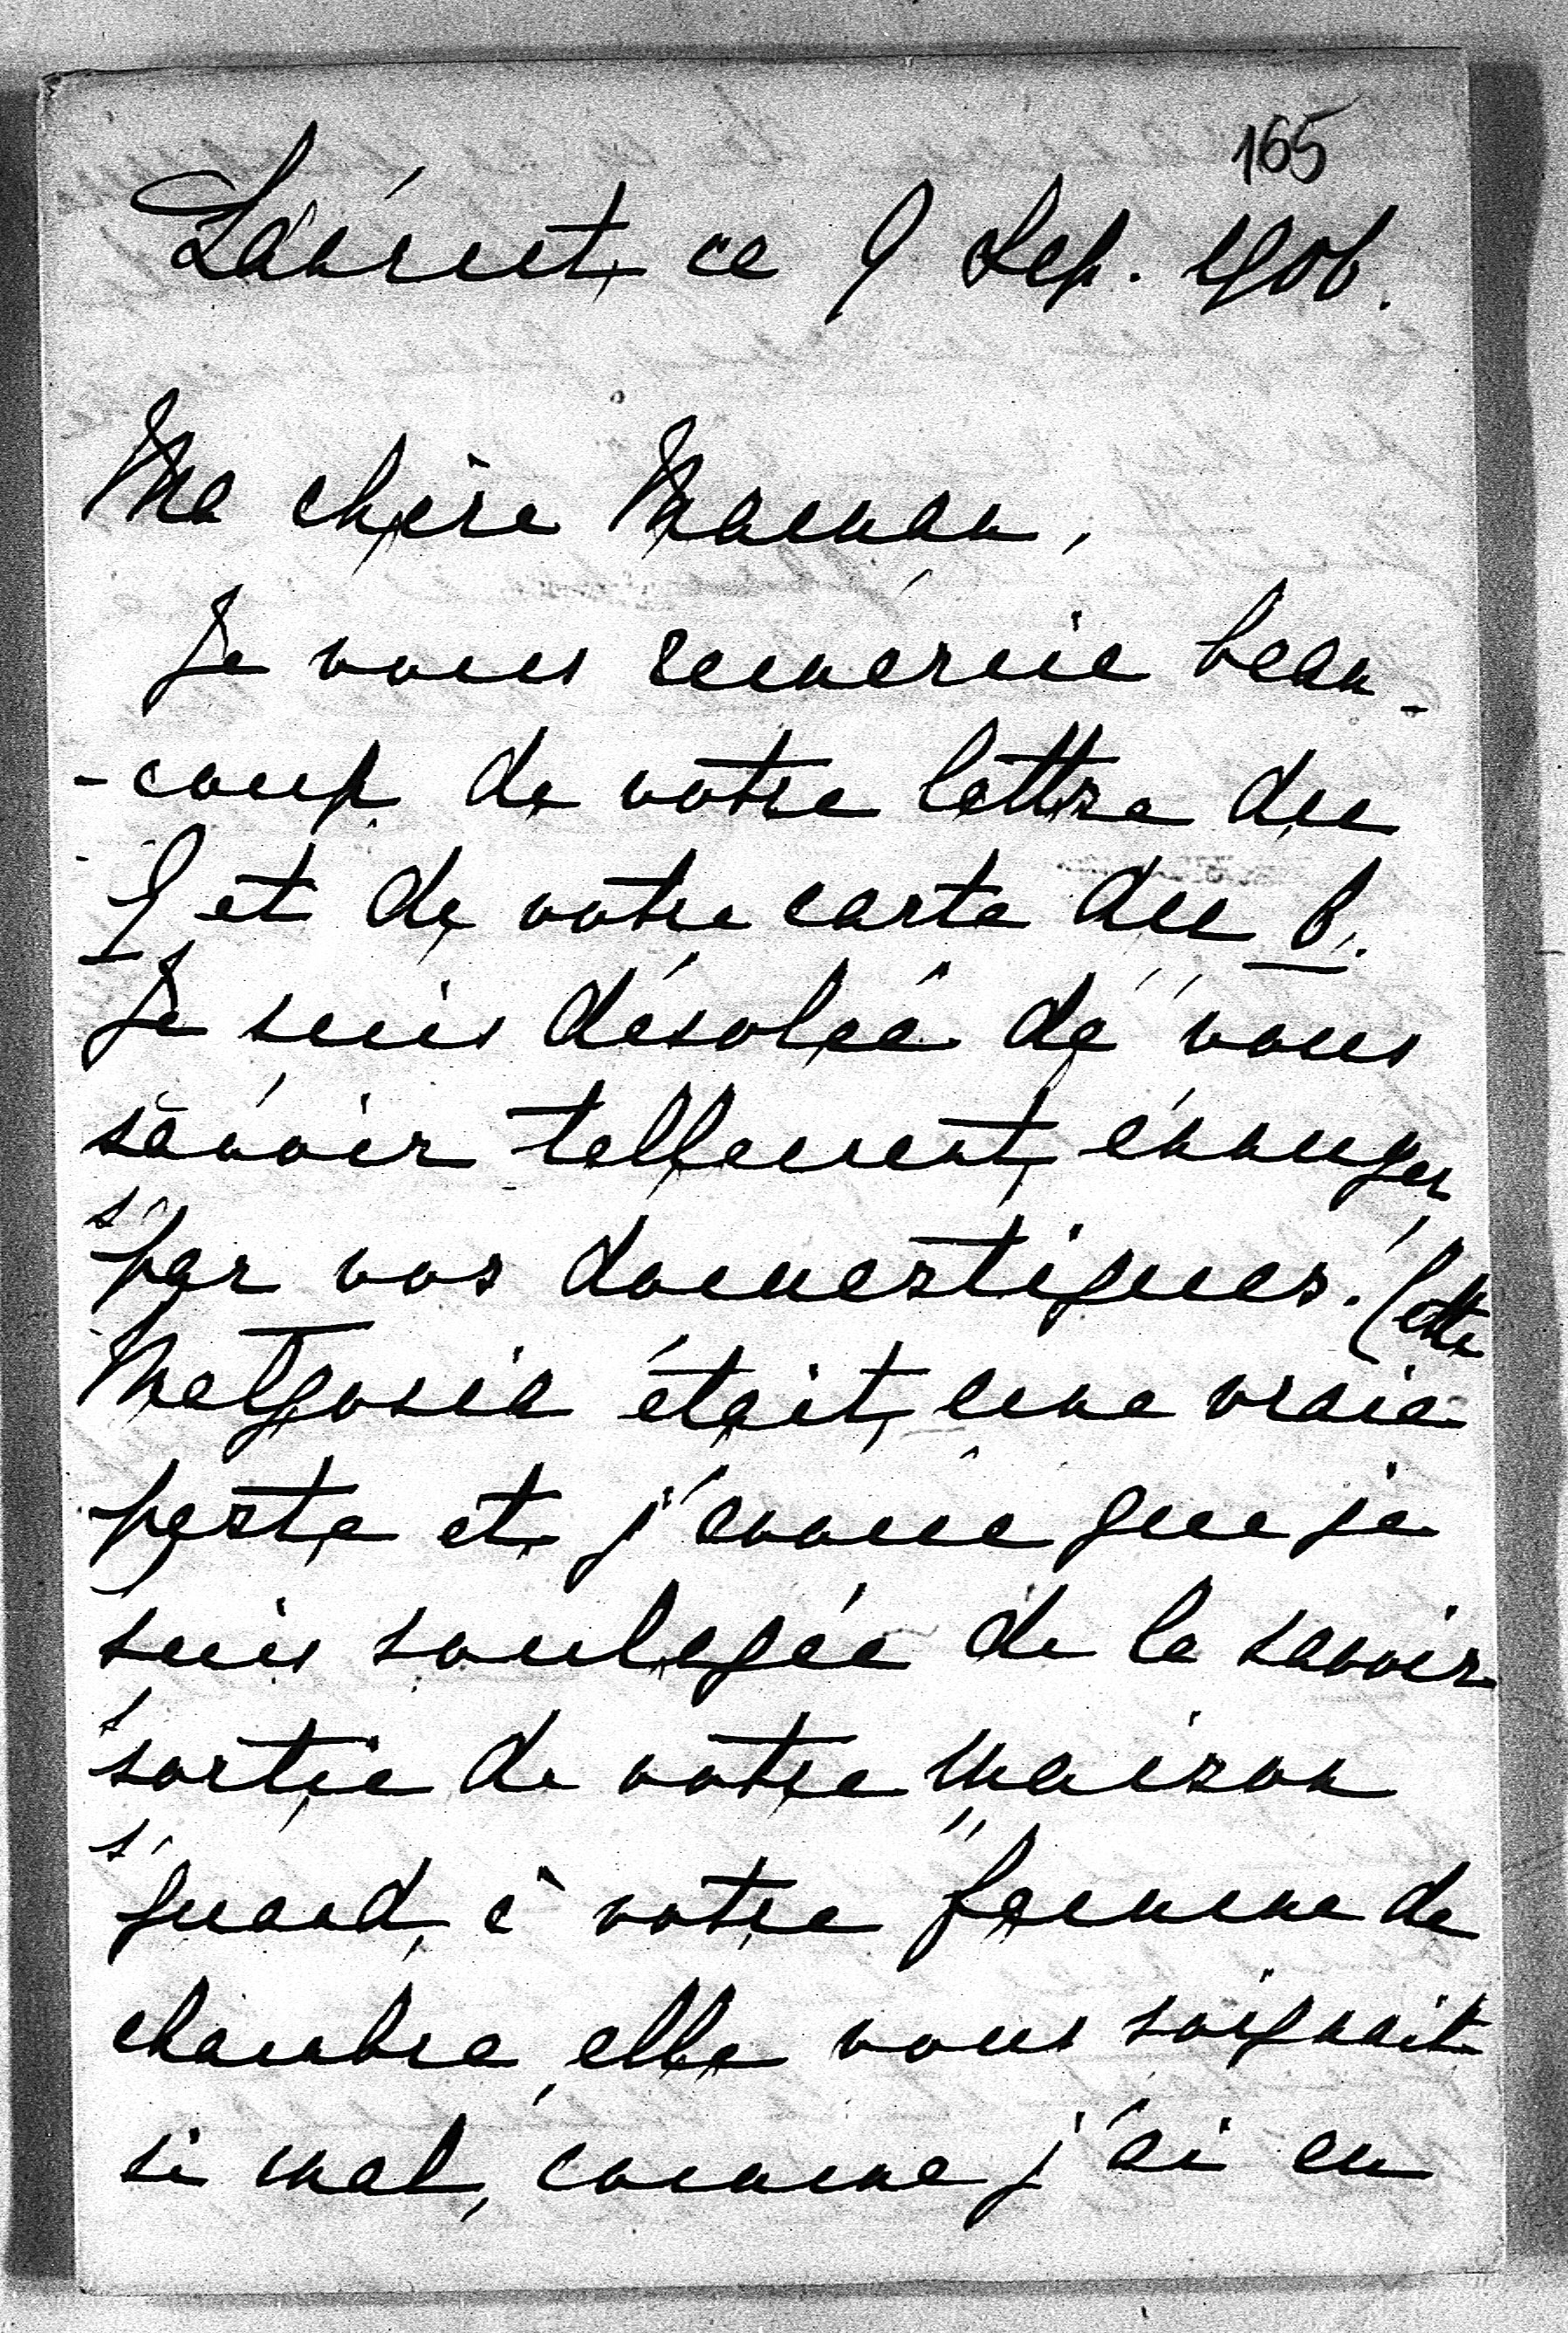 165
Łańcut, ce 9 Sep. 1906.
Ma chère Maman,
Je vous remercie beau-
-coup de votre lettre du
9 et de votre carte du 8.
Je suis désolée de vous
savoir tellement
par vos domestiques! Cette
Malgosia était une vraie
peste et j'avoue que je
suis soulagée de la savoir
sortie de votre maison
quand à votre femme de
chambre, elle vous soignait
si mal, comme j'ai eu